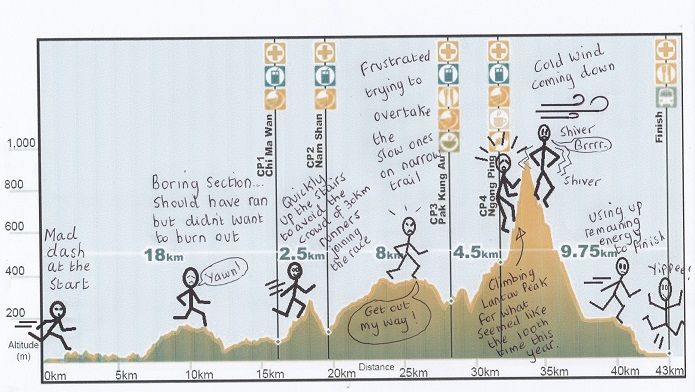 CP1
Chi Ma Wan
CP2
Nam Shan
CP3
Pak Kung Au
CP4
Ngong Ping
Finish
Frustrated
trying to
overtake
the
slow ones
on narrow
trail
Cold wind
coming down
Shiver
Brrrr..
Shiver
Boring Section...
should have ran
but didn't want
to burn out
Quickly
up the stairs
to avoid the
crowd of 30km
runners
joining
the race
Mad
dash
at the
Start
Yawn!
Get out
my way!
Climbing
Lantau Peak
for what
seemed like
the 100th
time this
year.
Using up
remaining
energy
to finish
Yippee!
18km
2.5km
8km
4.5km
9.75km
1,000
800
600
400
200
Altitude
(m)
Distance
0km
5km
10km
15km
20km
25km
30km
35km
40km
43km